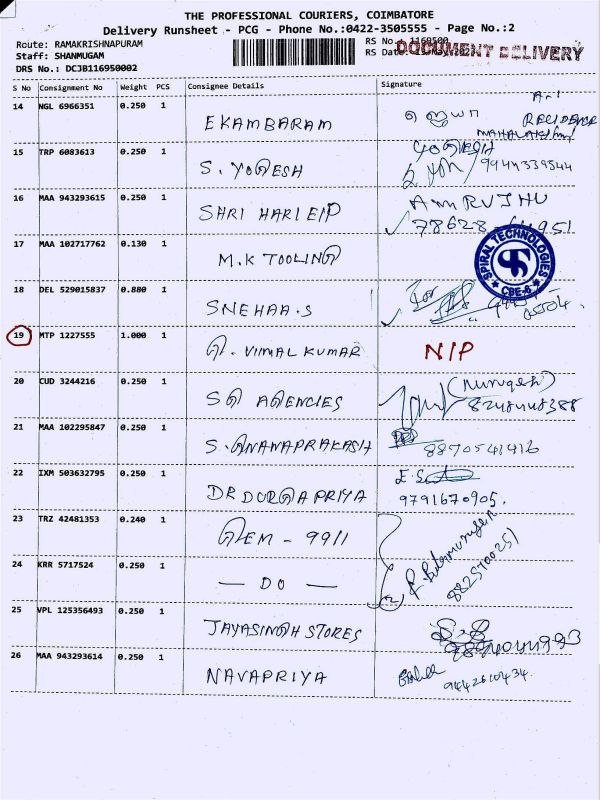 THE PROFESSIONAL COURIERS, COIMBATORE
Delivery Runsheet - PCG - Phone No.:0422-3505555 - Page No.:2
Route: RAMAKRISHNAPURAM
RS No.: 1169500
Staff: SHANMUGAM
RS Date:
DOCUMENT DELIVERY
DRS No.: DCJB116950002
S No Consignment No Weight PCS Consignee Details Signature
14 NGL 6966351 0.250 1 EKAMBARAM ஜெயா
MAHALAKSHMI
15 TRP 6083613 0.250 1 S. YOGESH YOGESH
9944339544
16 MAA 943293615 0.250 1 SHRI HARI EIP AMRUTHU
17 MAA 102717762 0.130 1 M.K TOOLING
SPIRAL TECHNOLOGIES
CBE-6
18 DEL 529015837 0.880 1 SNEHAA.S For
19 MTP 1227555 1.000 1 G. VIMAL KUMAR NIP
20 CUD 3244216 0.250 1 SG AGENCIES (Murugesh)
8248448388
21 MAA 102295847 0.250 1 S.GNANAPRAKASH 8870541416
22 IXM 503632795 0.250 1 DR DURGA PRIYA
9791670905.
23 TRZ 42481353 0.240 1 GEM - 9911
24 KRR 5717524 0.250 1 — DO —
25 VPL 125356493 0.250 1 JAYASINGH STORES
26 MAA 943293614 0.250 1 NAVAPRIYA 9442610434.